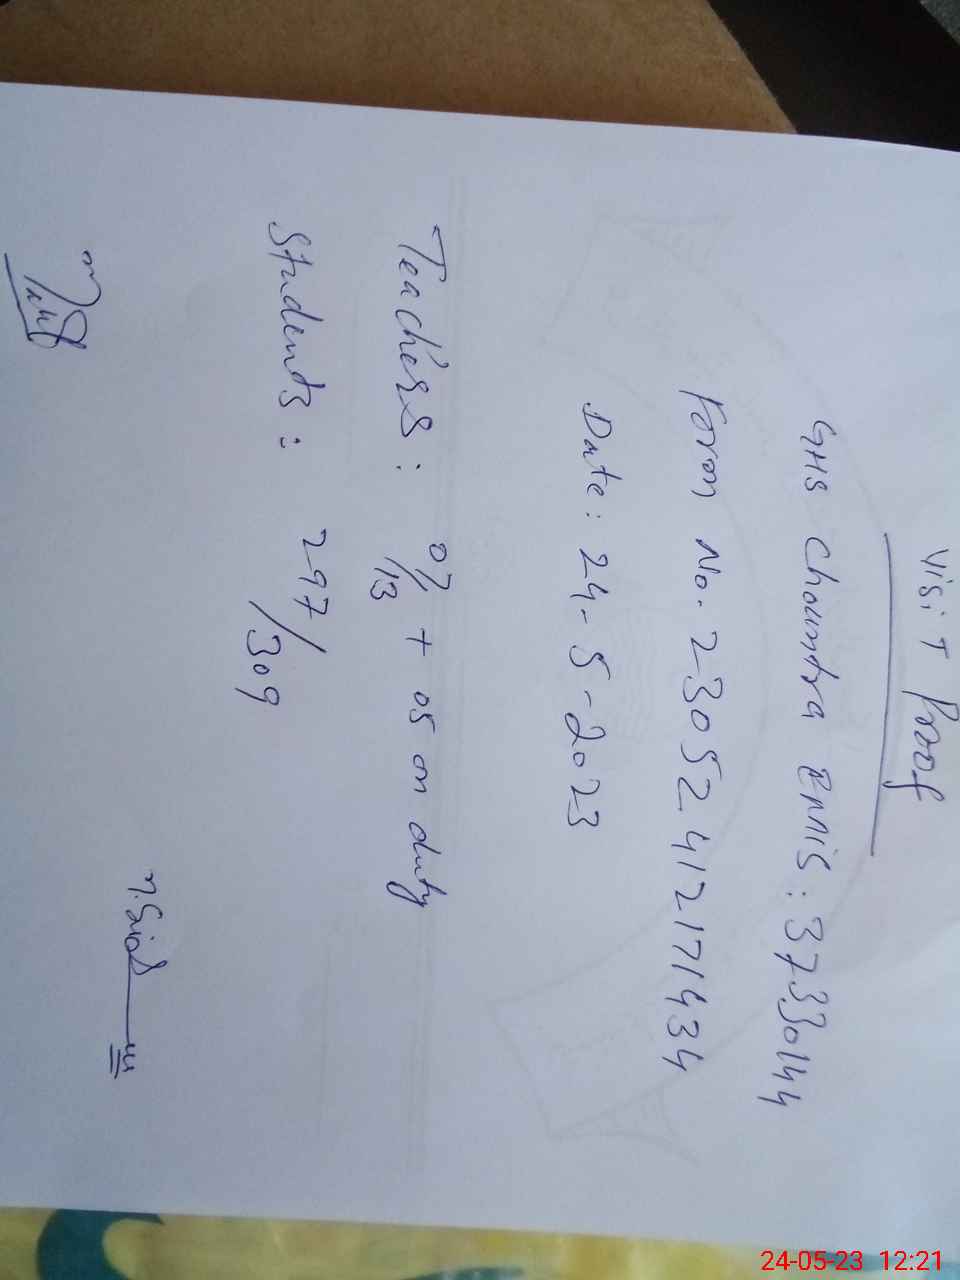 Visit Proof
GHS Chountra EMIS: 37330144
Form No. 23052412171434
Date: 24-5-2023
Teachers: 07/13 + 05 on duty
Students: 297/309
24-05-23 12:21